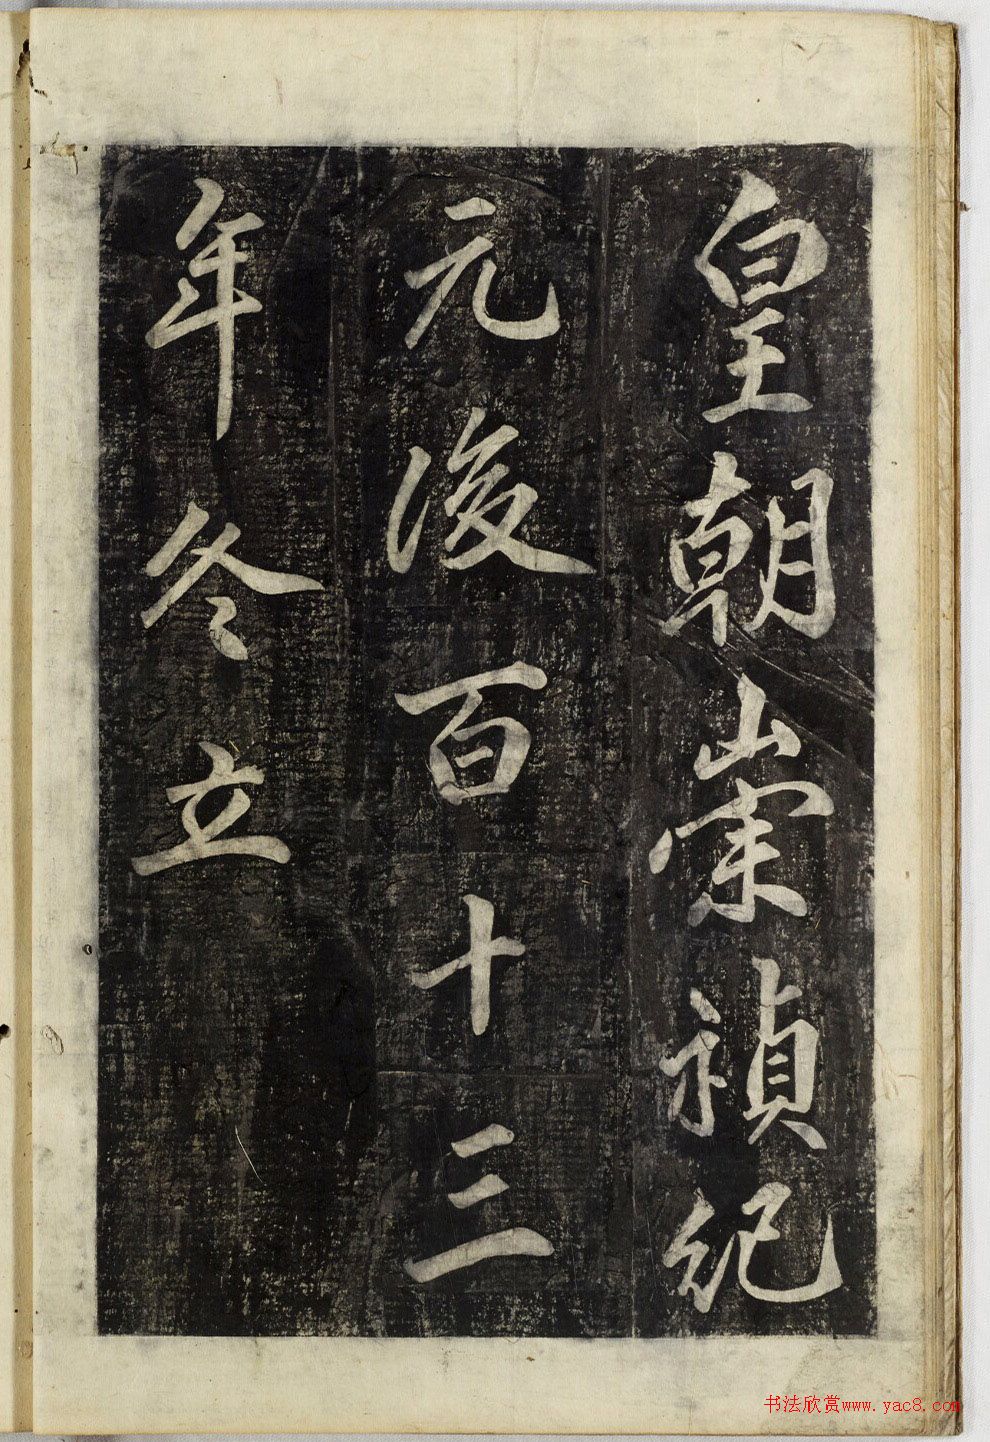 皇朝崇禎紀
元後百十三
年冬立
书法欣赏www.yac8.com